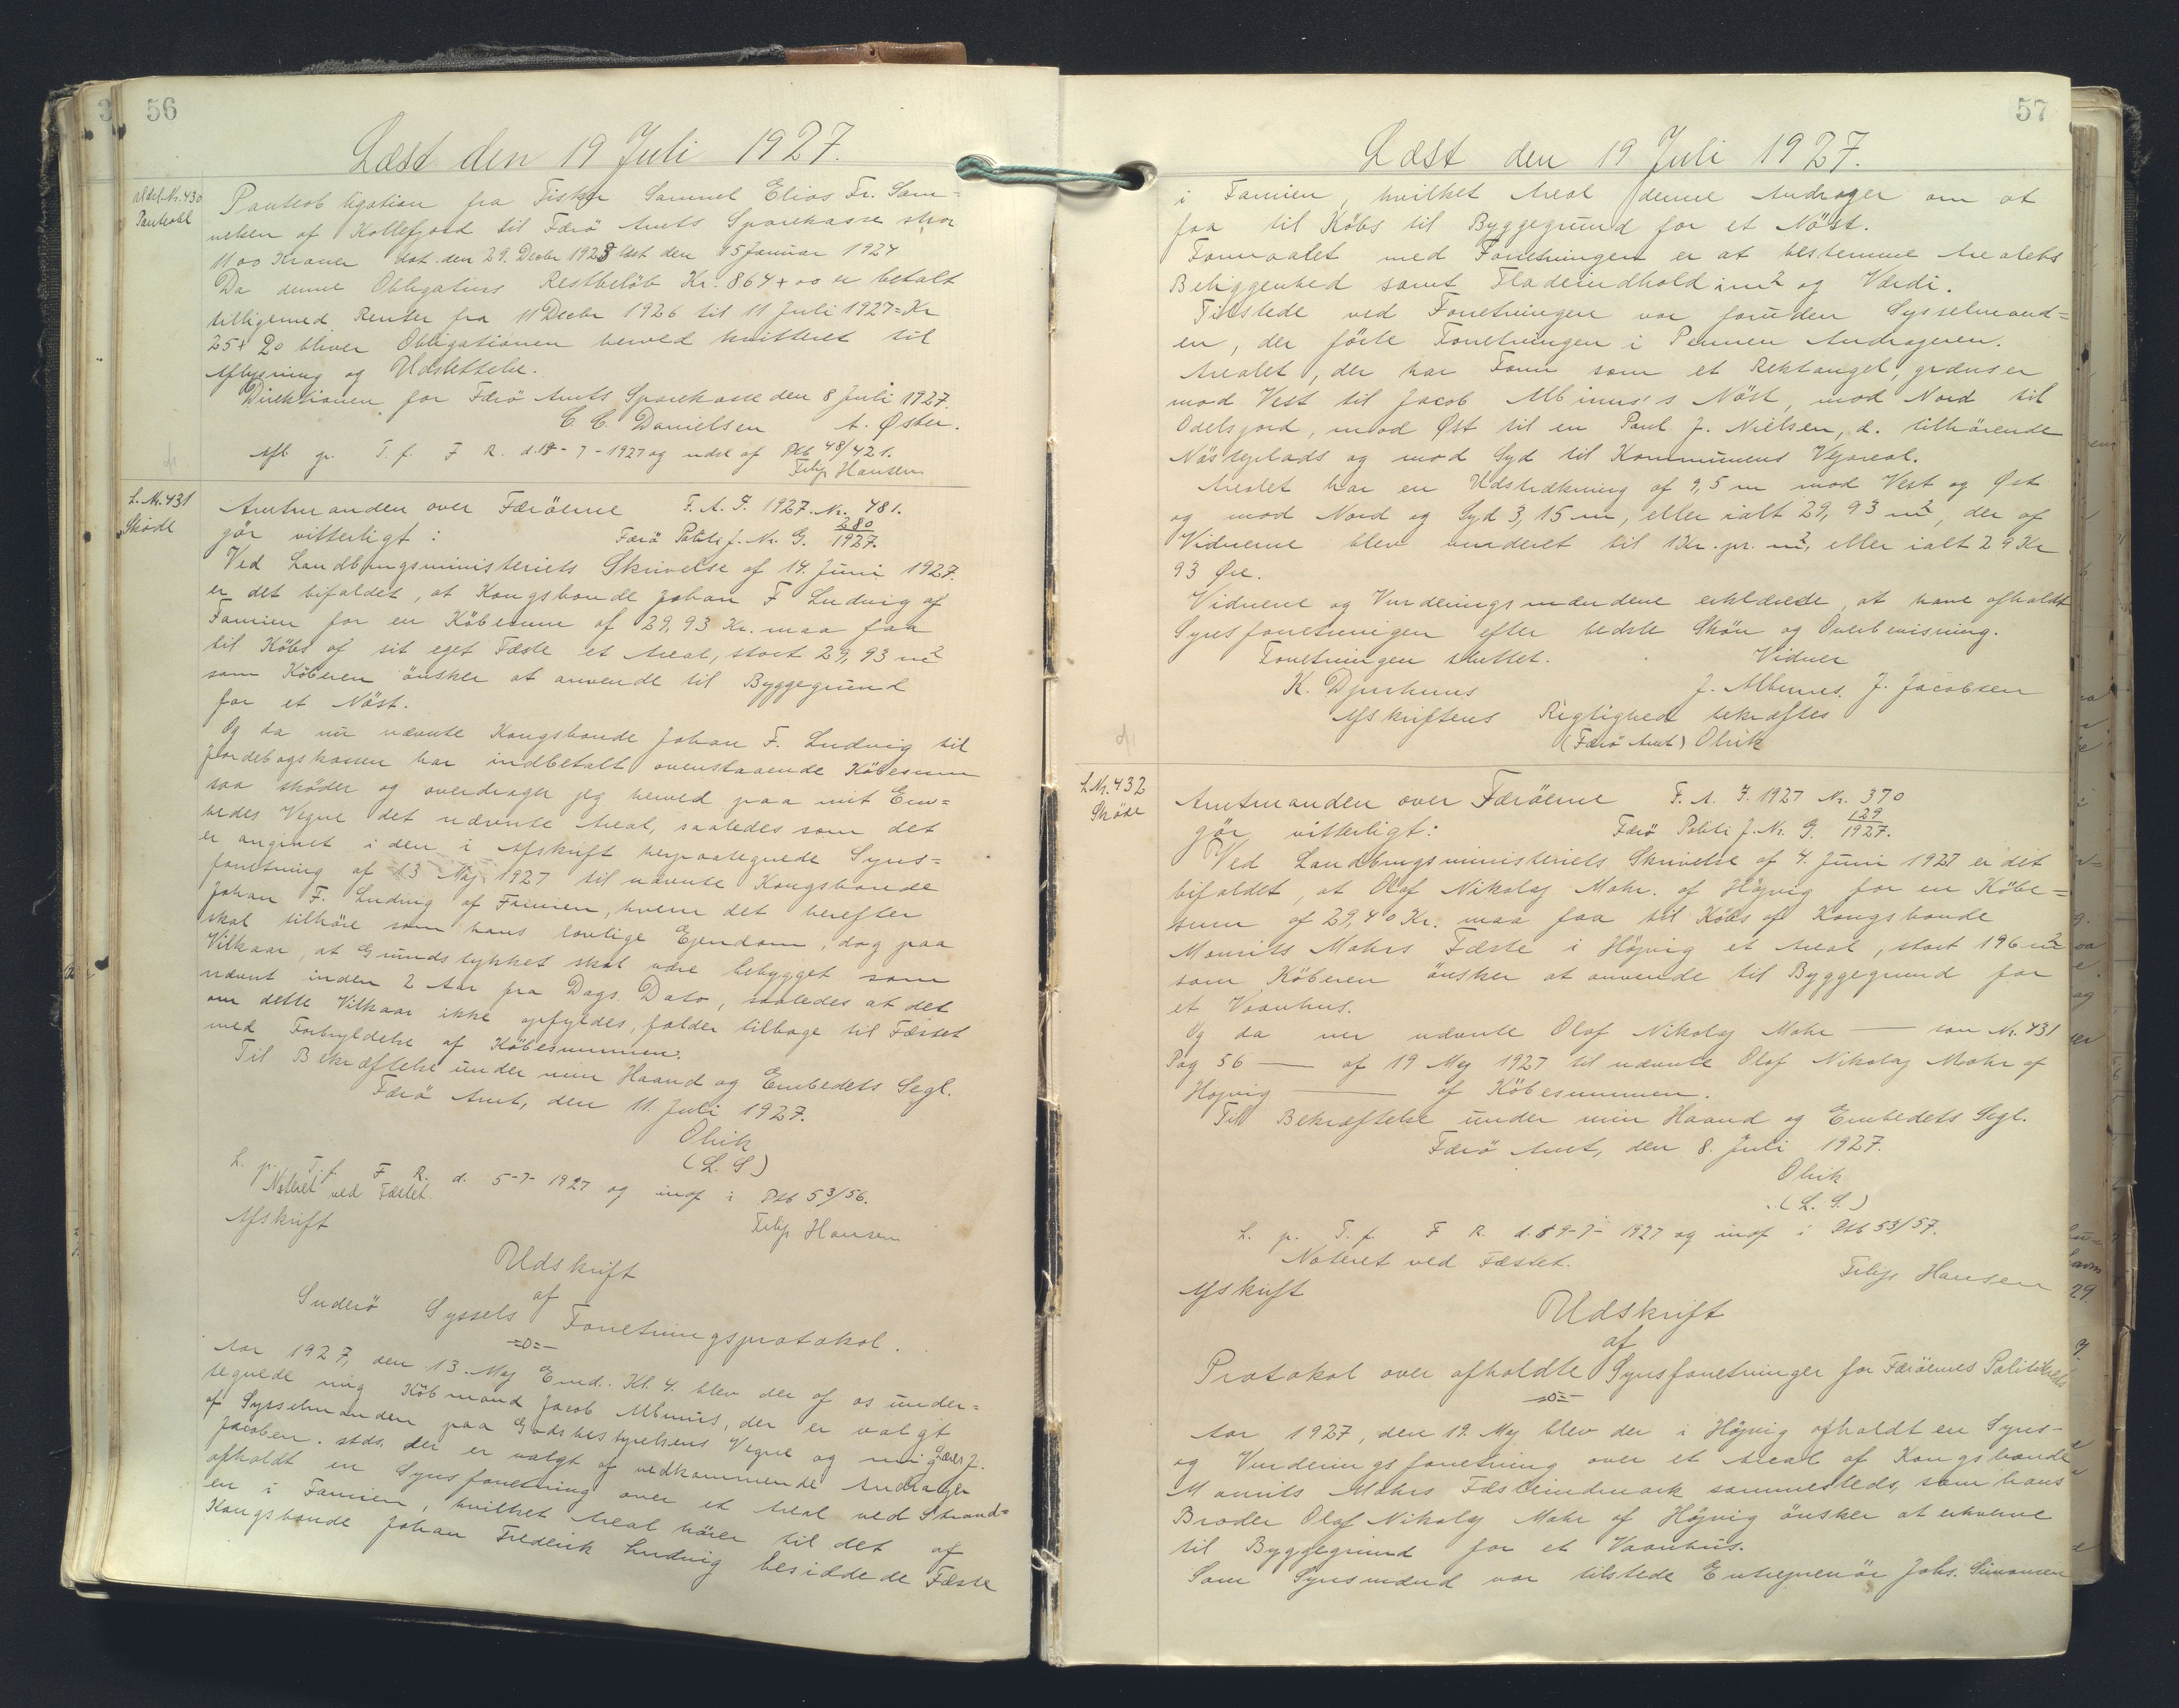 56
Læst den 19 Juli 1927.
Udsl. Nr. 430
Panteobl
Panteobligation fra Fisker Samuel Elias Fr. Sam=
uelsen af Kollefjord til Færö Amts Sparekasse stor
1100 Kroner dat. den 29. Decbr 1923 læst den 15 Januar 1924
Da denne Obligations Restbelöb Kr. 864+00 er betalt
tilligemed Renter fra 11 Decbr 1926 til 11 Juli 1927=Kr
25+20 bliver Obligationen herved kvitteret til
Aflysning og Udslettelse.
Direktionen for Færö Amts Sparekasse den 8 Juli 1927.
C. C. Danielsen A. Øster.
Afl p. T. f. F R. d. 19-7-1927 og udsl af Ptb 48/421.
Filip Hansen
L. Nr. 431
Sköde
Amtmanden over Færöerne F. A. J. 1927. Nr. 481.
gör vitterligt: Færö Politi J. Nr. G. 280/1927.
Ved Landbrugsministeriets Skrivelse af 14. Juni 1927.
er det bifaldet, at Kongsbonde Johan F Ludvig af
Famien for en Köbesum af 29,93 Kr. maa faa
til Köbs af sit eget Fæste et Areal, stort 29,93 m2
som Köberen önsker at anvende til Byggegrund
for et Nöst.
Og da nu nævnte Kongsbonde Johan F. Ludvig til
Jordebogskassen har indbetalt ovenstaaende Köbesum
saa sköder og overdrager jeg herved paa mit Em=
bedes Vegne det nævnte Areal, saaledes som det
er angivet i den i Afskrift herpaategnede Syns=
forretning af 13 Maj 1927 til nævnte Kongsbonde
Johan F. Ludvig af Famien, hvem det herefter
skal tilhöre som hans lovlige Ejendom, dog paa
Vilkaar, at Grundstykket skal være bebygget som
nævnt inden 2 Aar fra Dags Dato, saaledes at det
om dette Vilkaar ikke opfyldes, falder tilbage til Fæstet
med Fortrydelse af Köbesummen.
Til Bekræftelse under min Haand og Embedets Segl.
Færö Amt, den 11. Juli 1927.
Olrik
(L. S)
L. p. T. f. F. R. d. 5-7-1927 og indf i Ptb 53/56.
Noteret ved Fæstet.
Filip Hansen
Afskrift
Udskrift
af
Suderö Syssels Forretningsprotokol.
=o=
Aar 1927, den 13. Maj Emd. Kl. 4. blev der af os under=
tegnede mig Köbmand Jacob Albinus, der er valgt
af Sysselmanden paa Godsbestyrelsens Vegne og mig Lærer J.
Jacobsen. stds. der er valgt af vedkommende Andrager
afholdt en Synsforretning over et Areal ved Strand=
en i Famien, hvilket Areal hörer til det af
Kongsbonde Johan Frederik Ludvig besiddede Fæste
57
Læst den 19 Juli 1927.
i Famien, hvilket Areal denne Andrager om at
faa til Köbs til Byggegrund for et Nöst.
Formaalet med Forretningen er at bestemme Arealets
Beliggenhed samt Fladeindhold i m2 og Værdi.
Tilstede ved Forretningen var foruden Sysselmand=
en, der förte Forretningen i Pennen Andrageren.
Arealet, der har Form som et Rektangel, grænser
mod Vest til Jacob Albinus's Nöst, mod Nord til
Odelsjord, mod Øst til en Poul J. Nielsen, d. tilhörende
Nösteplads og mod Syd til Kommunens Vejareal.
Arealet har en Udstrækning af 9,5 m mod Vest og Øst
og mod Nord og Syd 3,15 m, eller ialt 29,93 m2, der af
Vidnerne blev vurderet til 1 Kr. pr. m2, eller ialt 29 Kr
93 Øre.
Vidnerne og Vurderingsmændene erklærede, at have afholdt
Synsforretningen efter bedste Skön og Overbevisning.
Forretningen sluttet. Vidner
K. Djurhuus J. Albinus. J. Jacobsen
Afskriftens Rigtighed bekræftes
(Færö Amt) Olrik
L. Nr. 432
Sköde
Amtmanden over Færöerne F. A. J. 1927 Nr. 370
gör vitterligt: Færö Politi J. Nr. G. 129/1927.
Ved Landbrugsministeriets Skrivelse af 4. Juni 1927 er det
bifaldet, at Olaf Nikolaj Mohr. af Höjvig for en Köbe=
sum af 29,40 Kr. maa faa til Köbs af Kongsbonde
Mourits Mohrs Fæste i Höjvig et Areal, stort 196 m2
som Köberen önsker at anvende til Byggegrund for
et Vaanhus.
Og da nu nævnte Olaf Nikolaj Mohr — som Nr. 431
Pag 56 — af 19 Maj 1927 til nævnte Olaf Nikolaj Mohr af
Hojvig — af Köbesummen.
Til Bekræftelse under min Haand og Embedets Segl.
Færö Amt, den 8. Juli 1927.
Olrik
(L. S.)
L. p. T. f. F R. d. 19-7-1927 og indf i Ptb 53/57.
Noteret ved Fæstet.
Filip Hansen
Afskrift
Udskrift
af
Protokol over afholdte Synsforretninger for Færöernes Politikreds
=o=
Aar 1927, den 19. Maj blev der i Höjvig afholdt en Syns-
og Vurderingsforretning over et Areal af Kongsbonde
Mourits Mohrs Fæsteindmark sammesteds, som hans
Broder Olaf Nikolaj Mohr af Höjvig önsker at erhverve
til Byggegrund for et Vaanhus.
Som Synsmænd var tilstede Entreprenör Johs. Simonsen